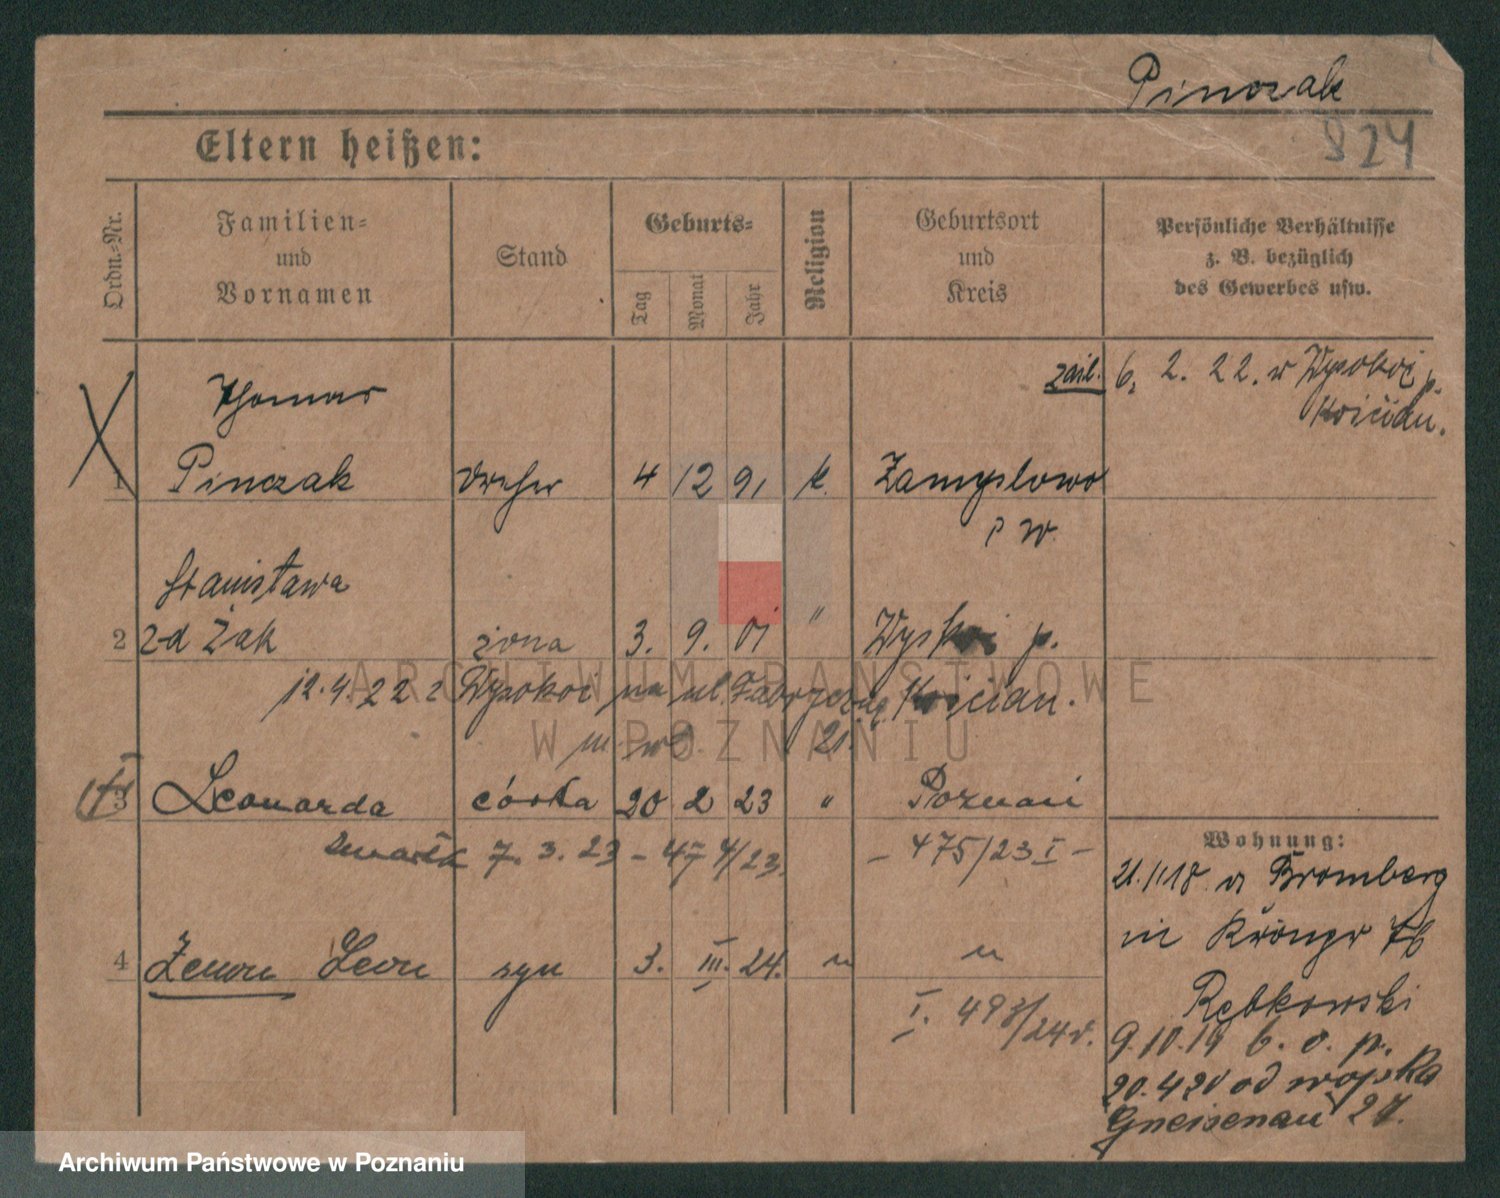 Pinczak
824
Eltern heißen:
Ordn.-Nr.
Familien-
und
Vornamen
Stand
Geburts-
Tag
Monat
Jahr
Religion
Geburtsort
und
Kreis
Persönliche Verhältnisse
z. B. bezüglich
des Gewerbes usw.
6. 2. 22. w Wysokoi p.
Kościan.
Thomas
1 Pinczak Dreher 4 12 91 k. Zamyslowo
p W.
Stanisława
2 z d Żak żona 3. 9. 01 " p.
12.4.22 z Wysokoi na ul. Kościan.
21.
3 Leonarda córka 20 2 23 " Poznań
7. 3. 23 - 4/23. - 475/23 I -
Wohnung:
21.1.18 Bromberg
4 Zenon Leon syn 3. III. 24. " "
I. 493/24 r.
Rębkowski
9.10.19 b. o. p.
20.4.20 od wojska
Gneisenau 27.
ARCHIWUM PAŃSTWOWE
W POZNANIU
Archiwum Państwowe w Poznaniu